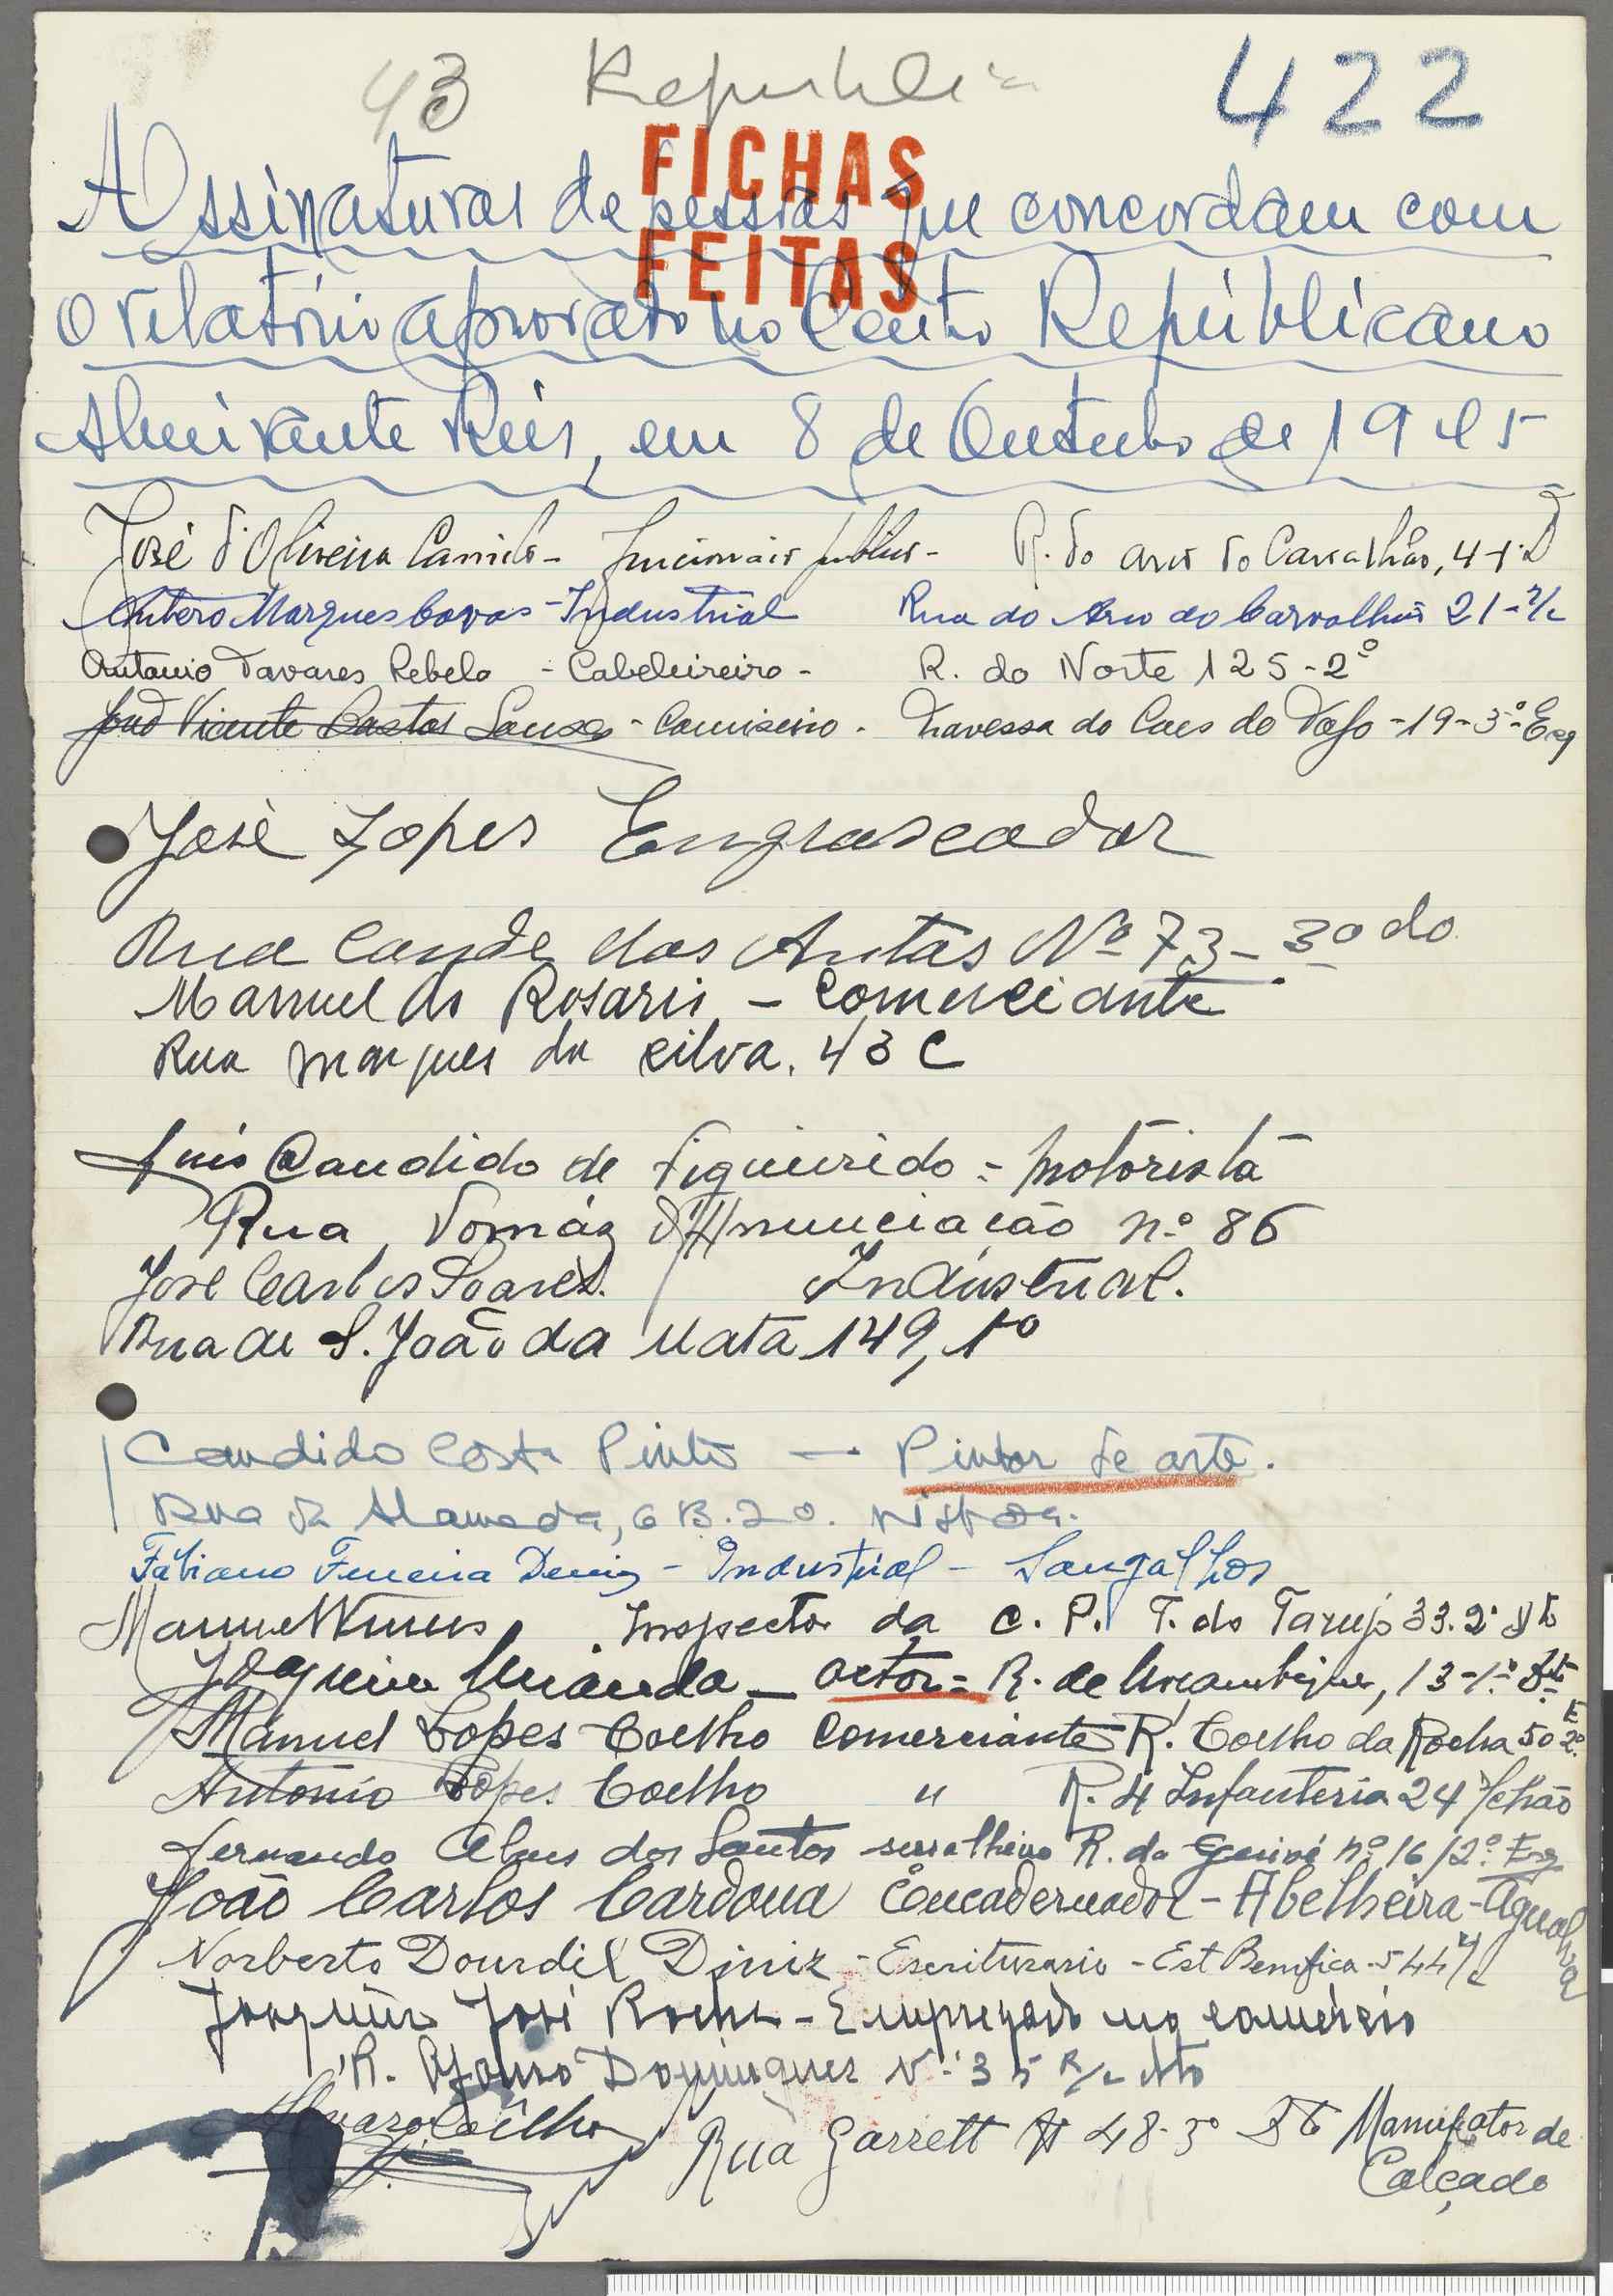 43 Republica 422
FICHAS
FEITAS
Assinaturas de pessoas que concordam com
o relatório aprovado no Centro Républicano
Almirante Reis, em 8 de Outubro de 1945
José d'Oliveira Camilo - funcionario publico - R. do Arco do Carvalhão, 4-1º D
Antero Marques Covas - Industrial Rua do Arco do Carvalhão 21-r/c
Antonio Tavares Rebelo - Cabeleireiro - R. do Norte 125-2º
José Vicente Castos Sousa - Camiseiro - Travessa do Caes do Tojo - 19 - 3º Esq
José Lopes Engraxador
Rua Conde das Antas Nº 73 - 3º do
Manuel do Rosario - Comerciante
Rua Marques da Silva, 43 C
Luis Candido de Figueirêdo = Motorista
Rua Tomáz d'Anunciação nº 86
José Carlos Soares. Industrial.
Rua de S. João da Mata 149, 1º
Candido Costa Pinto — Pintor de arte.
Rua da Alameda, 6 B. 2º. Lisboa.
Fabiano Ferreira Deniz - Industrial - Sangalhos
Manuel Nunes Inspector da C. P. T. do Tarujo 33. 2º Dto
Joaquim Miranda - actor = R. de Moçambique, 13-1º Dto
Manuel Lopes Coelho Comerciante R. Coelho da Rocha 50 2º E
Antonio Lopes Coelho " R. 4 Infanteria 24 r/chão
Fernando Alves dos Santos serralheiro R. do nº 16 / 2º Esq
João Carlos Cardona Encadernador - Abelheira - Agualva
Norberto Dourdil Diniz - Escriturario - Est Bemfica - 544 r/c
Joaquim José Rocha - Empregado no comércio
R. Afonso Domingues Nº 35 R/c dto
Alvaro Coêlho Rua Garrett 48-3º Dt Manufator de
Calçado